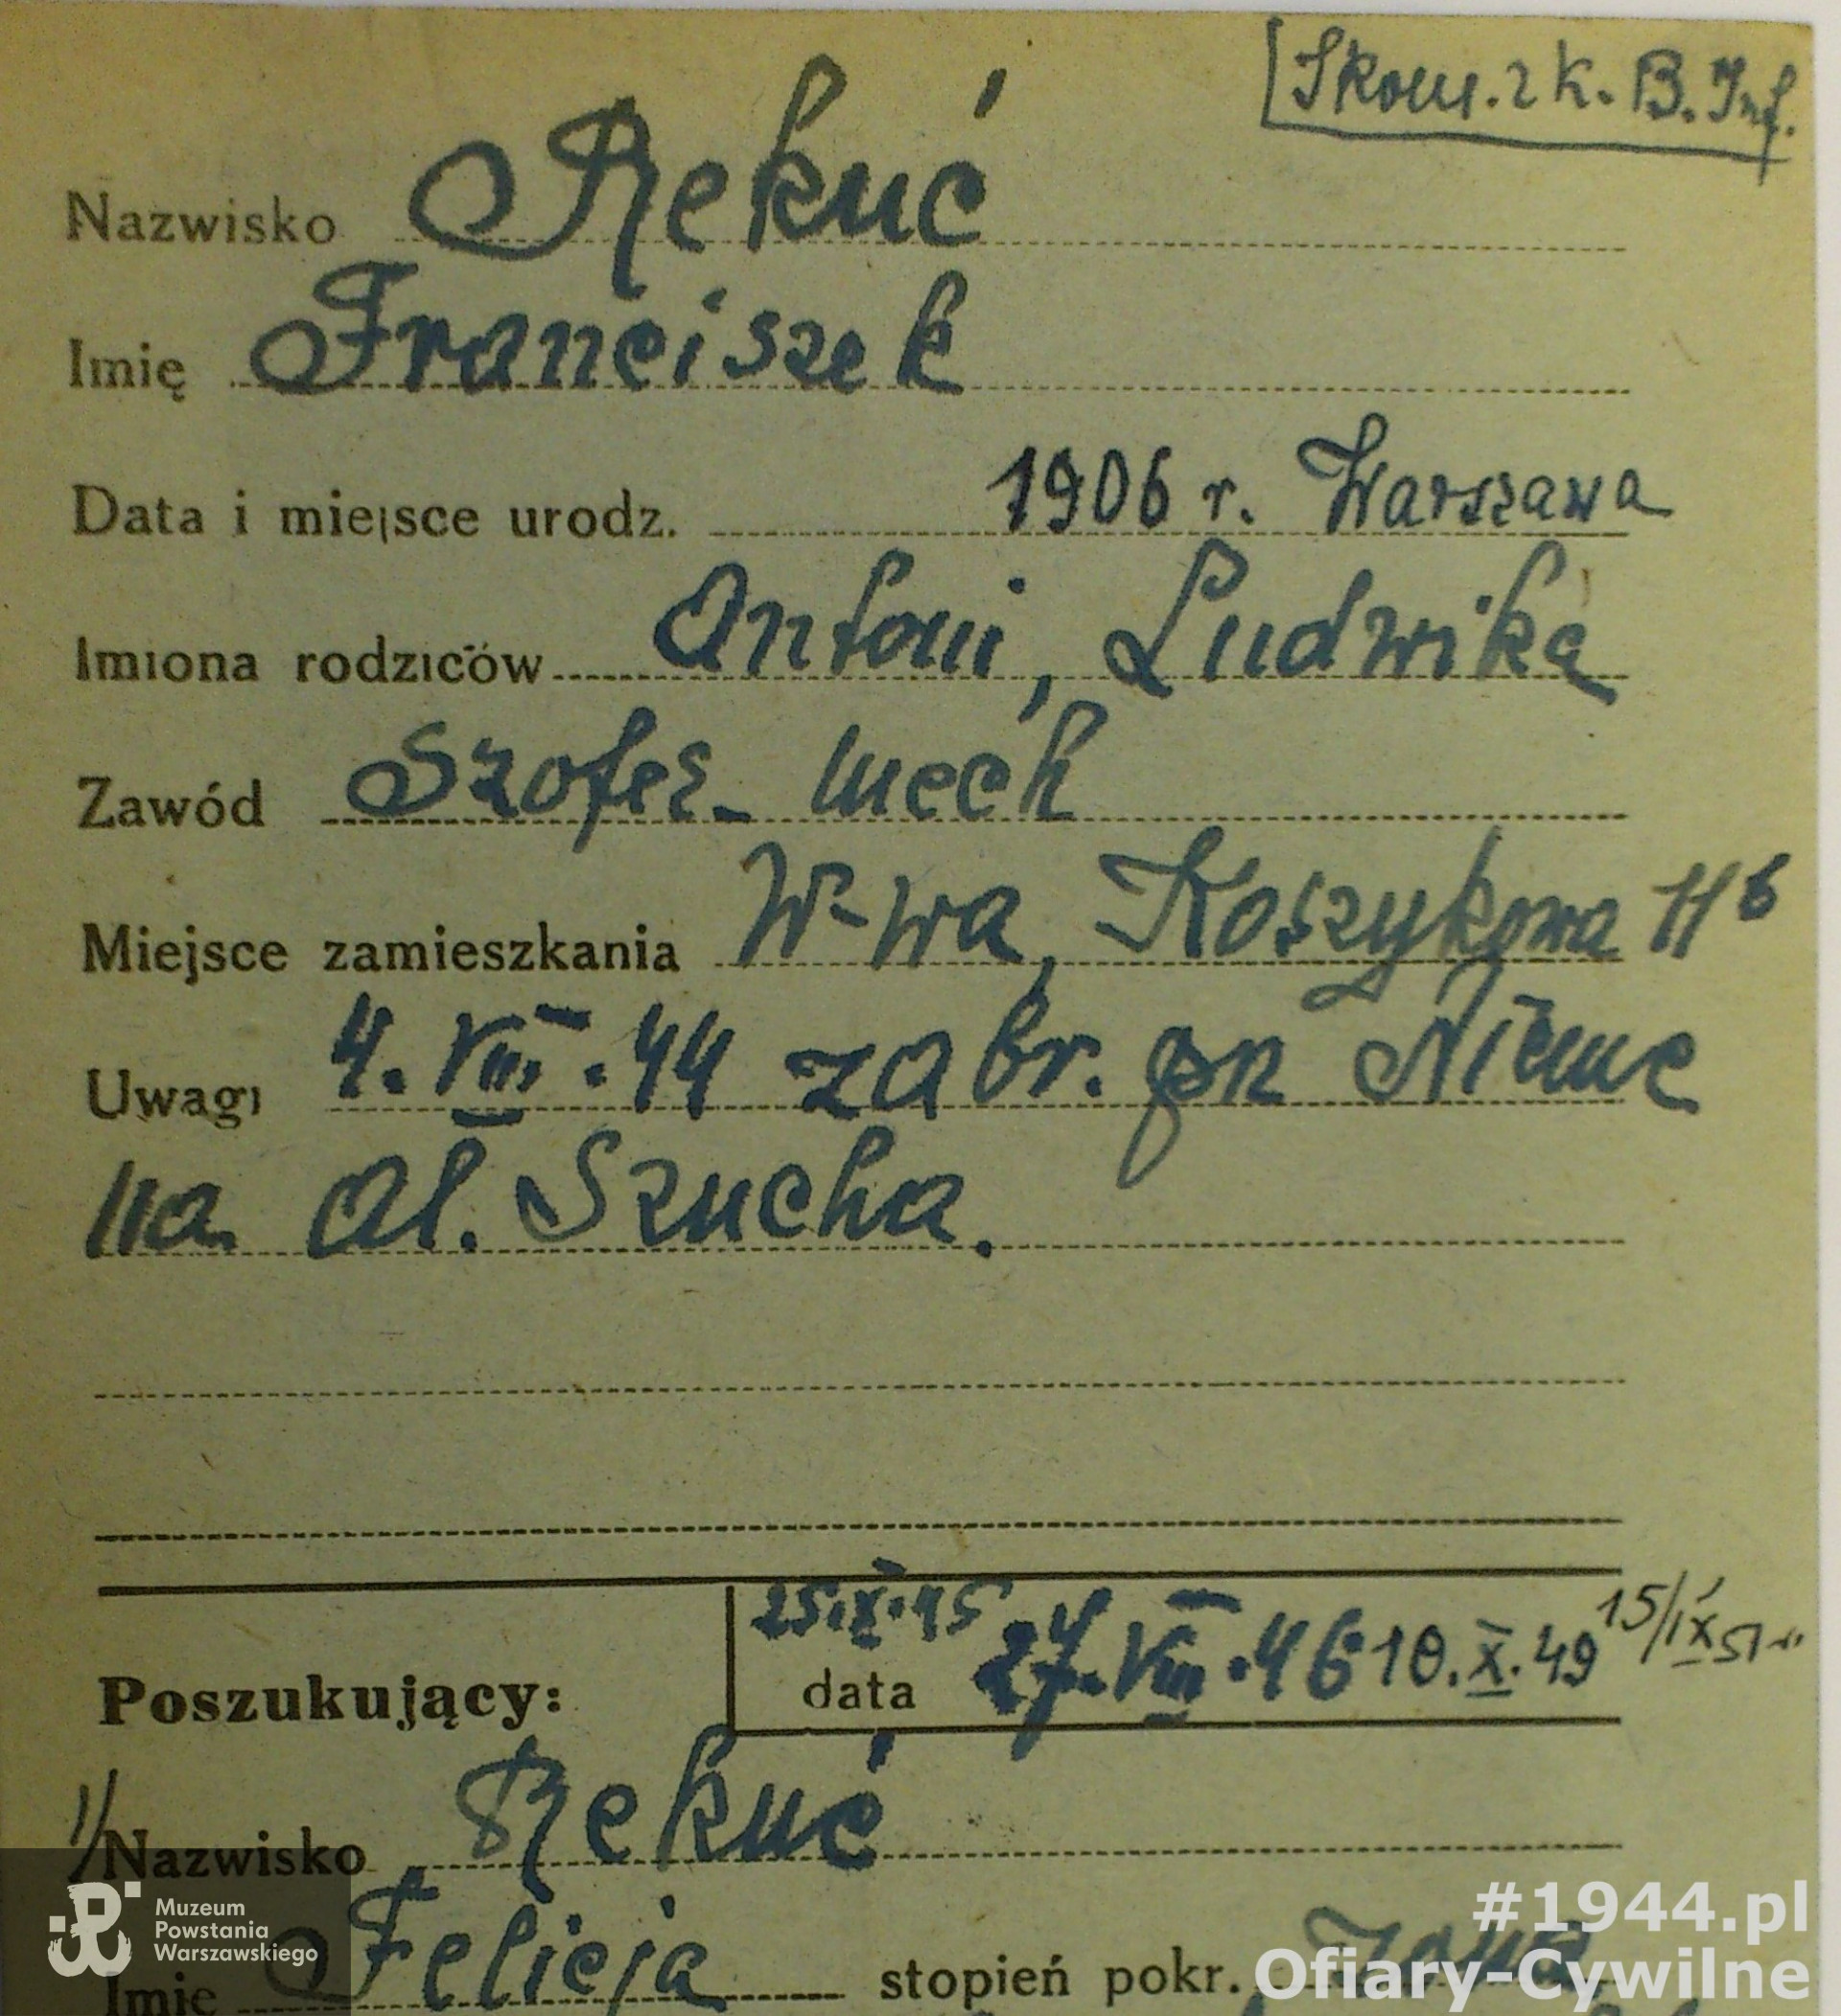 Skom. z k. B. Inf.
Nazwisko Rekuć
Imię Franciszek
Data i miejsce urodz. 1906 r. Warszawa
Imiona rodziców Antoni, Ludwika
Zawód Szofer-mech
Miejsce zamieszkania W-wa, Koszykowa 11b
Uwagi 4.VIII.44 zabr. pr Niemc
na Al. Szucha.
25.X.45
Poszukujący: data 27.VIII.46 10.X.49 15/IX 51
1/ Nazwisko Rekuć
Imię Felicja stopień pokr. żona
Muzeum
Powstania
Warszawskiego
#1944.pl
Ofiary-Cywilne